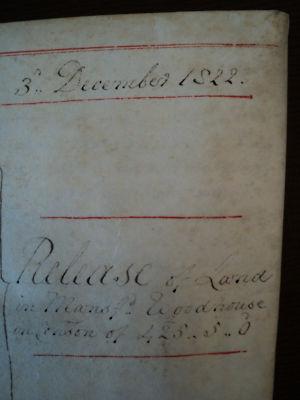 3d.. December 1822.
Release of Land
in Mansfd. Woodhouse
in Conson of £25..5..6